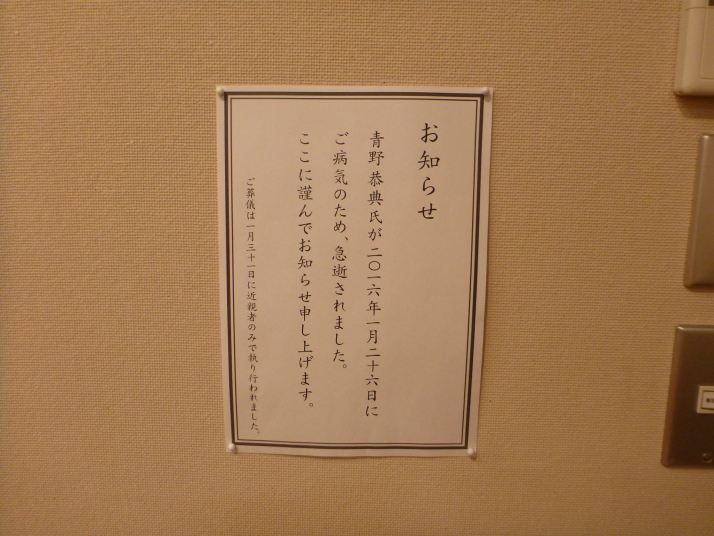 お知らせ
青野恭典氏が二〇一六年一月二十六日に
ご病気のため、急逝されました。
ここに謹んでお知らせ申し上げます。
ご葬儀は一月三十一日に近親者のみで執り行われました。